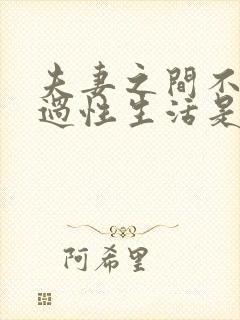 夫妻之間不
過性生活是
阿希里